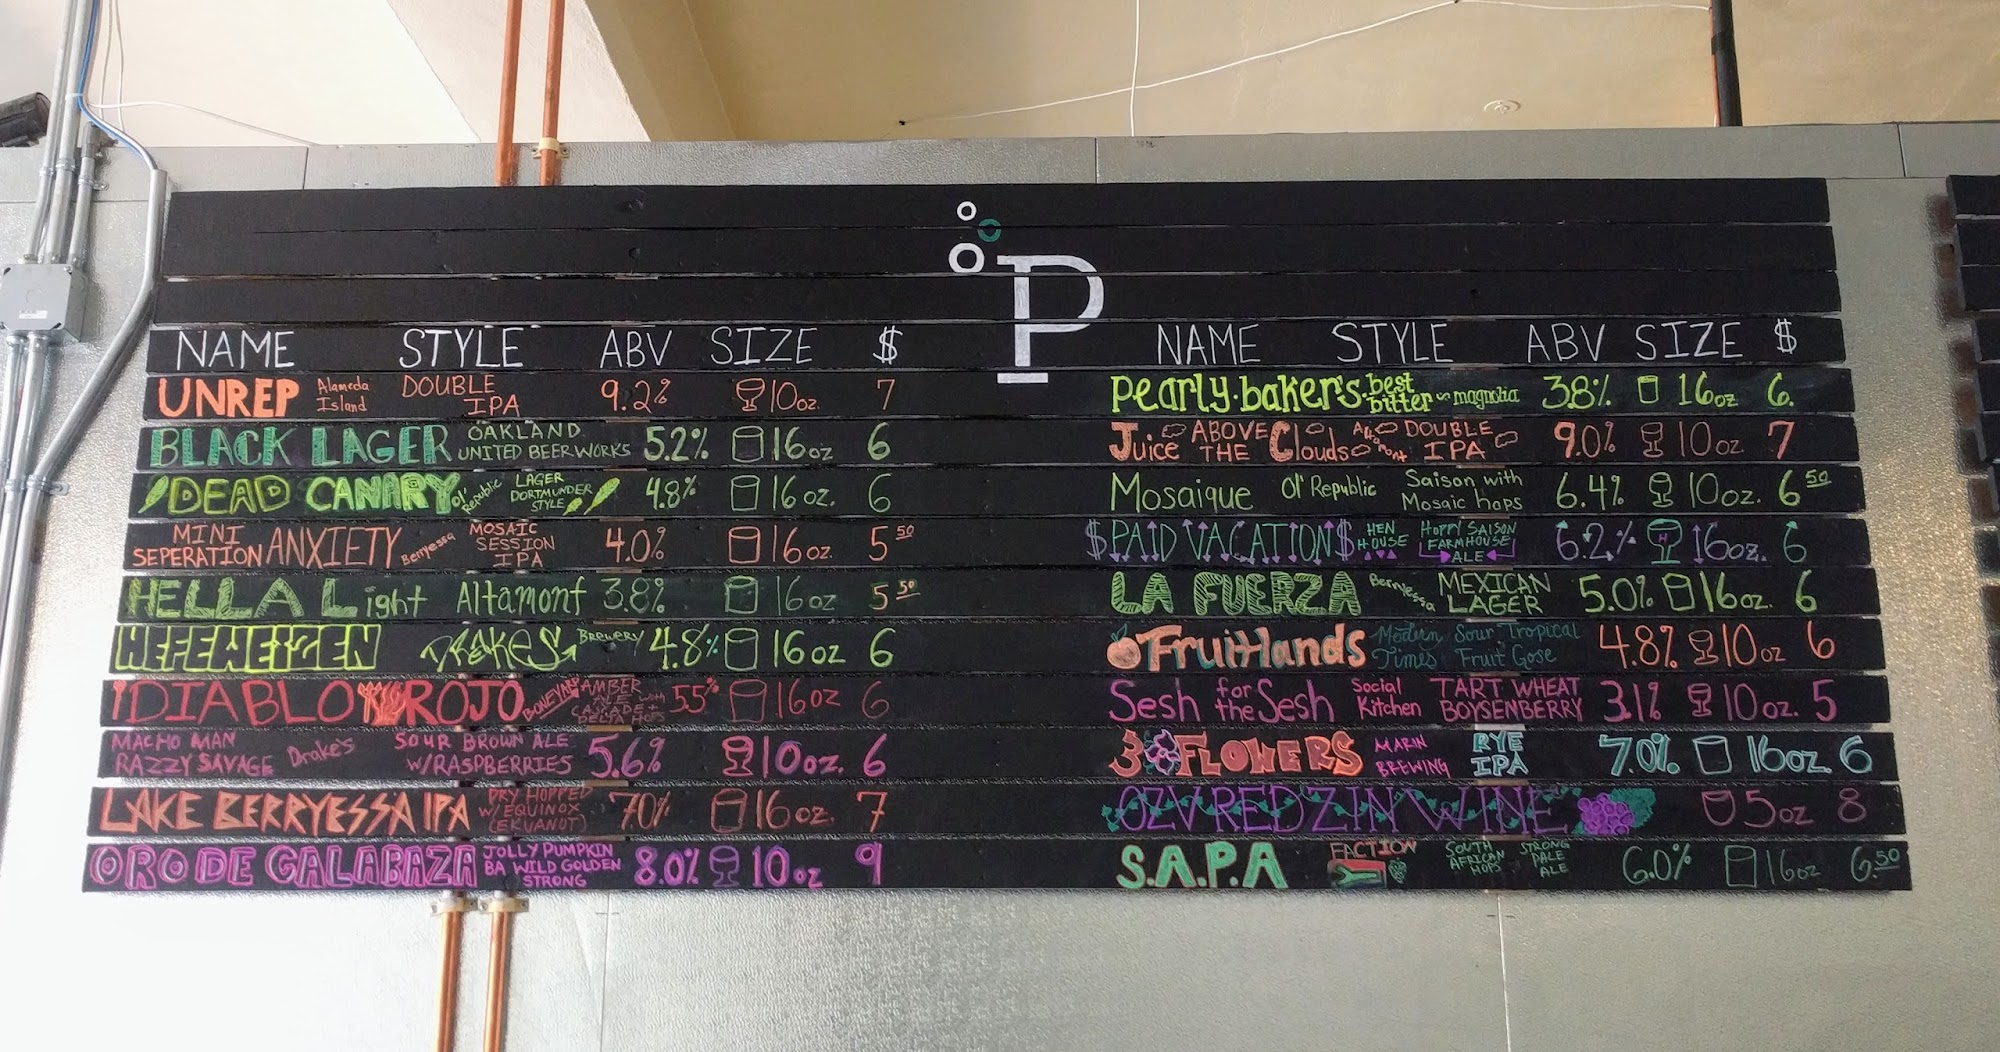 P
NAME STYLE ABV SIZE $
UNREP Alameda Island DOUBLE IPA 9.2% 10oz. 7
BLACK LAGER OAKLAND UNITED BEERWORKS 5.2% 16oz 6
DEAD CANARY Ol' Republic LAGER DORTMUNDER STYLE 4.8% 16oz. 6
MINI SEPERATION ANXIETY Berryessa MOSAIC SESSION IPA 4.0% 16oz. 5 50
HELLA Light Altamont 3.8% 16oz 5 50
HEFEWEIZEN DRAKES Brewery 4.8% 16oz 6
DIABLO ROJO BONEYARD AMBER ALE with CASCADE + DELTA HOPS 5.5% 16oz 6
MACHO MAN RAZZY SAVAGE Drake's SOUR BROWN ALE W/RASPBERRIES 5.6% 10oz. 6
LAKE BERRYESSA IPA DRY HOPPED W/ EQUINOX (EKUANOT) 7.0% 16oz. 7
ORO DE CALABAZA JOLLY PUMPKIN BA WILD GOLDEN STRONG 8.0% 10oz 9
NAME STYLE ABV SIZE $
Pearly·baker's·best bitter magnolia 3.8% 16oz 6.
Juice ABOVE THE Clouds Altamont DOUBLE IPA 9.0% 10oz 7
Mosaique Ol' Republic Saison with Mosaic hops 6.4% 10oz. 6 50
$PAID VACATION$ HEN HOUSE HOPPY SAISON FARMHOUSE ALE 6.2% H 16oz. 6
LA FUERZA Berryessa MEXICAN LAGER 5.0% 16oz. 6
Fruitlands Modern Times Sour Tropical Fruit Gose 4.8% 10oz 6
Sesh for the Sesh Social Kitchen TART WHEAT BOYSENBERRY 3.1% 10oz. 5
3 FLOWERS MARIN BREWING RYE IPA 7.0% 16oz. 6
OZV RED ZIN WINE 5oz 8
S.A.P.A FACTION SOUTH AFRICAN HOPS STRONG PALE ALE 6.0% 16oz 6.50